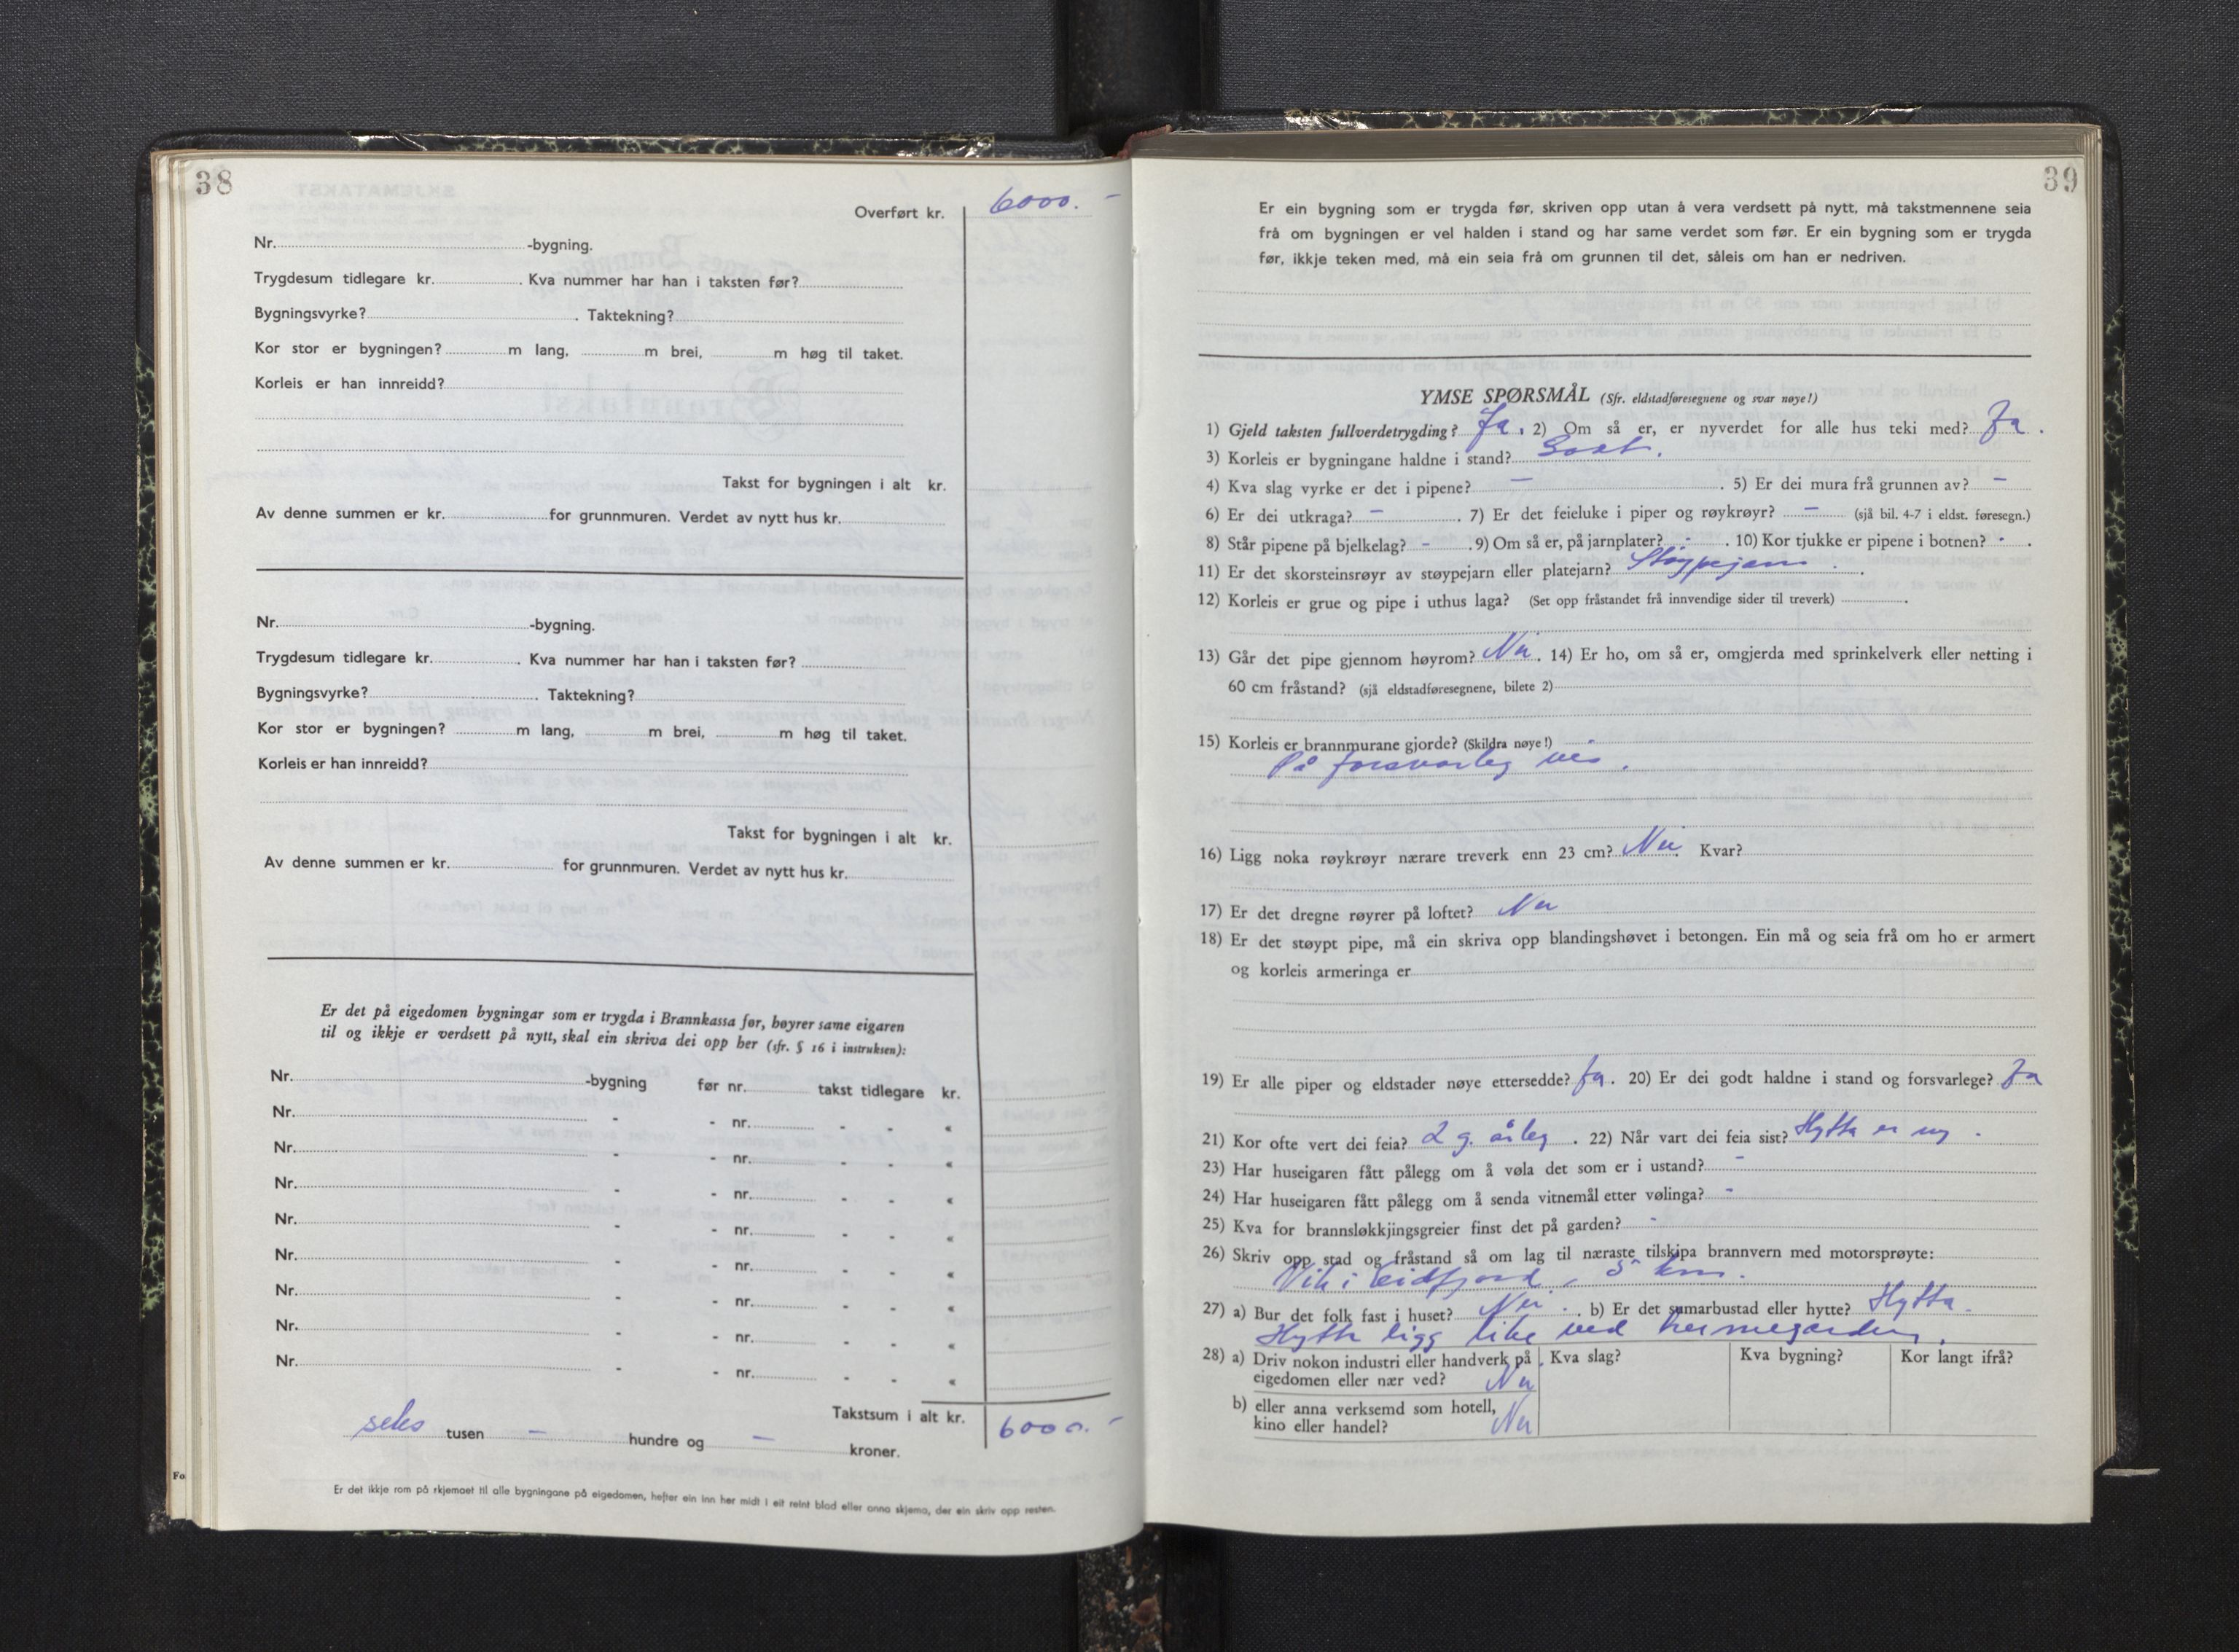 38
Overført kr. 6000.-
Nr. -bygning.
Trygdesum tidlegare kr. . Kva nummer har han i taksten før?
Bygningsvyrke? . Taktekning?
Kor stor er bygningen? m lang, m brei, m høg til taket.
Korleis er han innreidd?
Takst for bygningen i alt kr.
Av denne summen er kr. for grunnmuren. Verdet av nytt hus kr.
Nr. -bygning.
Trygdesum tidlegare kr. . Kva nummer har han i taksten før?
Bygningsvyrke? . Taktekning?
Kor stor er bygningen? m lang, m brei, m høg til taket.
Korleis er han innreidd?
Takst for bygningen i alt kr.
Av denne summen er kr. for grunnmuren. Verdet av nytt hus kr.
Er det på eigedomen bygningar som er trygda i Brannkassa før, høyrer same eigaren
til og ikkje er verdsett på nytt, skal ein skriva dei opp her (sfr. § 16 i instruksen):
Nr. -bygning før nr. takst tidlegare kr.
Nr. - - nr. - - «
Nr. - - nr. - - «
Nr. - - nr. - - «
Nr. - - nr. - - «
Nr. - - nr. - - «
Nr. - - nr. - - «
Nr. - - nr. - - «
Nr. - - nr. - - «
Takstsum i alt kr. 6000.-
seks tusen - hundre og - kroner.
Fo
Er det ikkje rom på skjemaet til alle bygningane på eigedomen, hefter ein inn her midt i eit reint blad eller anna skjema, der ein skriv opp resten.
39
Er ein bygning som er trygda før, skriven opp utan å vera verdsett på nytt, må takstmennene seia
frå om bygningen er vel halden i stand og har same verdet som før. Er ein bygning som er trygda
før, ikkje teken med, må ein seia frå om grunnen til det, såleis om han er nedriven.
YMSE SPØRSMÅL (Sfr. eldstadføresegnene og svar nøye!)
1) Gjeld taksten fullverdetrygding? Ja. 2) Om så er, er nyverdet for alle hus teki med? Ja.
3) Korleis er bygningane haldne i stand? Godt.
4) Kva slag vyrke er det i pipene? - . 5) Er dei mura frå grunnen av? -
6) Er dei utkraga? - . 7) Er det feieluke i piper og røykrøyr? - (sjå bil. 4-7 i eldst. føresegn.)
8) Står pipene på bjelkelag? - . 9) Om så er, på jarnplater? - . 10) Kor tjukke er pipene i botnen? - .
11) Er det skorsteinsrøyr av støypejarn eller platejarn? Støypejarn.
12) Korleis er grue og pipe i uthus laga? (Set opp fråstandet frå innvendige sider til treverk) .
13) Går det pipe gjennom høyrom? Nei. 14) Er ho, om så er, omgjerda med sprinkelverk eller netting i
60 cm fråstand? (sjå eldstadføresegnene, bilete 2)
15) Korleis er brannmurane gjorde? (Skildra nøye!)
På forsvarleg vis.
16) Ligg noka røykrøyr nærare treverk enn 23 cm? Nei. Kvar?
17) Er det dregne røyrer på loftet? Nei
18) Er det støypt pipe, må ein skriva opp blandingshøvet i betongen. Ein må og seia frå om ho er armert
og korleis armeringa er
19) Er alle piper og eldstader nøye ettersedde? Ja. 20) Er dei godt haldne i stand og forsvarlege? Ja
21) Kor ofte vert dei feia? 2 g. årleg. 22) Når vart dei feia sist? Hytta er ny.
23) Har huseigaren fått pålegg om å vøla det som er i ustand? -
24) Har huseigaren fått pålegg om å senda vitnemål etter vølinga? -
25) Kva for brannsløkkjingsgreier finst det på garden? -
26) Skriv opp stad og fråstand så om lag til næraste tilskipa brannvern med motorsprøyte:
Vik i Eidfjord, 5 km.
27) a) Bur det folk fast i huset? Nei. b) Er det sumarbustad eller hytte? Hytta.
Hytta ligg like ved heimegarden.
28) a) Driv nokon industri eller handverk på Kva slag? Kva bygning? Kor langt ifrå?
eigedomen eller nær ved? Nei
b) eller anna verksemd som hotell,
kino eller handel? Nei